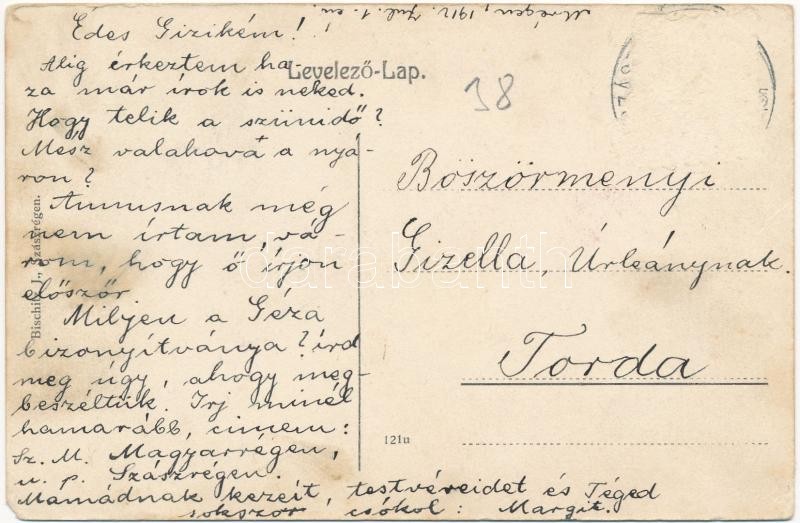 Mrégen, 1912. Jul. 1.-én.
Édes Gizikém!
Alig érkeztem ha-
za már írok is neked.
Hogy telik a szünidő?
Mész valahová a nyá-
ron?
Annusnak még
nem írtam, vá-
rom, hogy ő írjon
először
Miljen a Géza
bizonyítványa? írd
meg úgy, ahogy meg-
beszéltük. Irj minél
hamarább, címem:
Sz. M. Magyarrégen,
u. p. Szászrégen.
Mamádnak kezeit, testvéreidet és Téged
sokszor csókol: Margit.
Levelező-Lap.
38
Böszörményi
Gizella, Úrleánynak.
Torda
121u
Bischitz J., Szászrégen.
darabanth